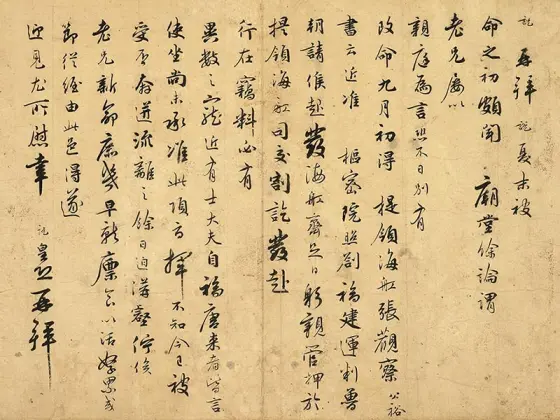 說再拜 說夏末被
命之初頗聞 廟堂餘論謂
老兄屢以
親庭為言然不日別有
改命九月初得 提領海船張觀察公裕
書云近准 樞密院照劄福建運判魯
朝請候起發海船齊足日躬親管押於
提領海船司交割訖發赴
行在竊料必有
異數之寵近有士大夫自福唐來者皆言
使坐尚未承准此項指揮不知今已被
受否奔迸流離之餘日迫溝壑佇俟
老兄新命庶幾早就廩食以活孥累或
節從經由此邑得遂
迎見尤所慰幸 說皇恐再拜